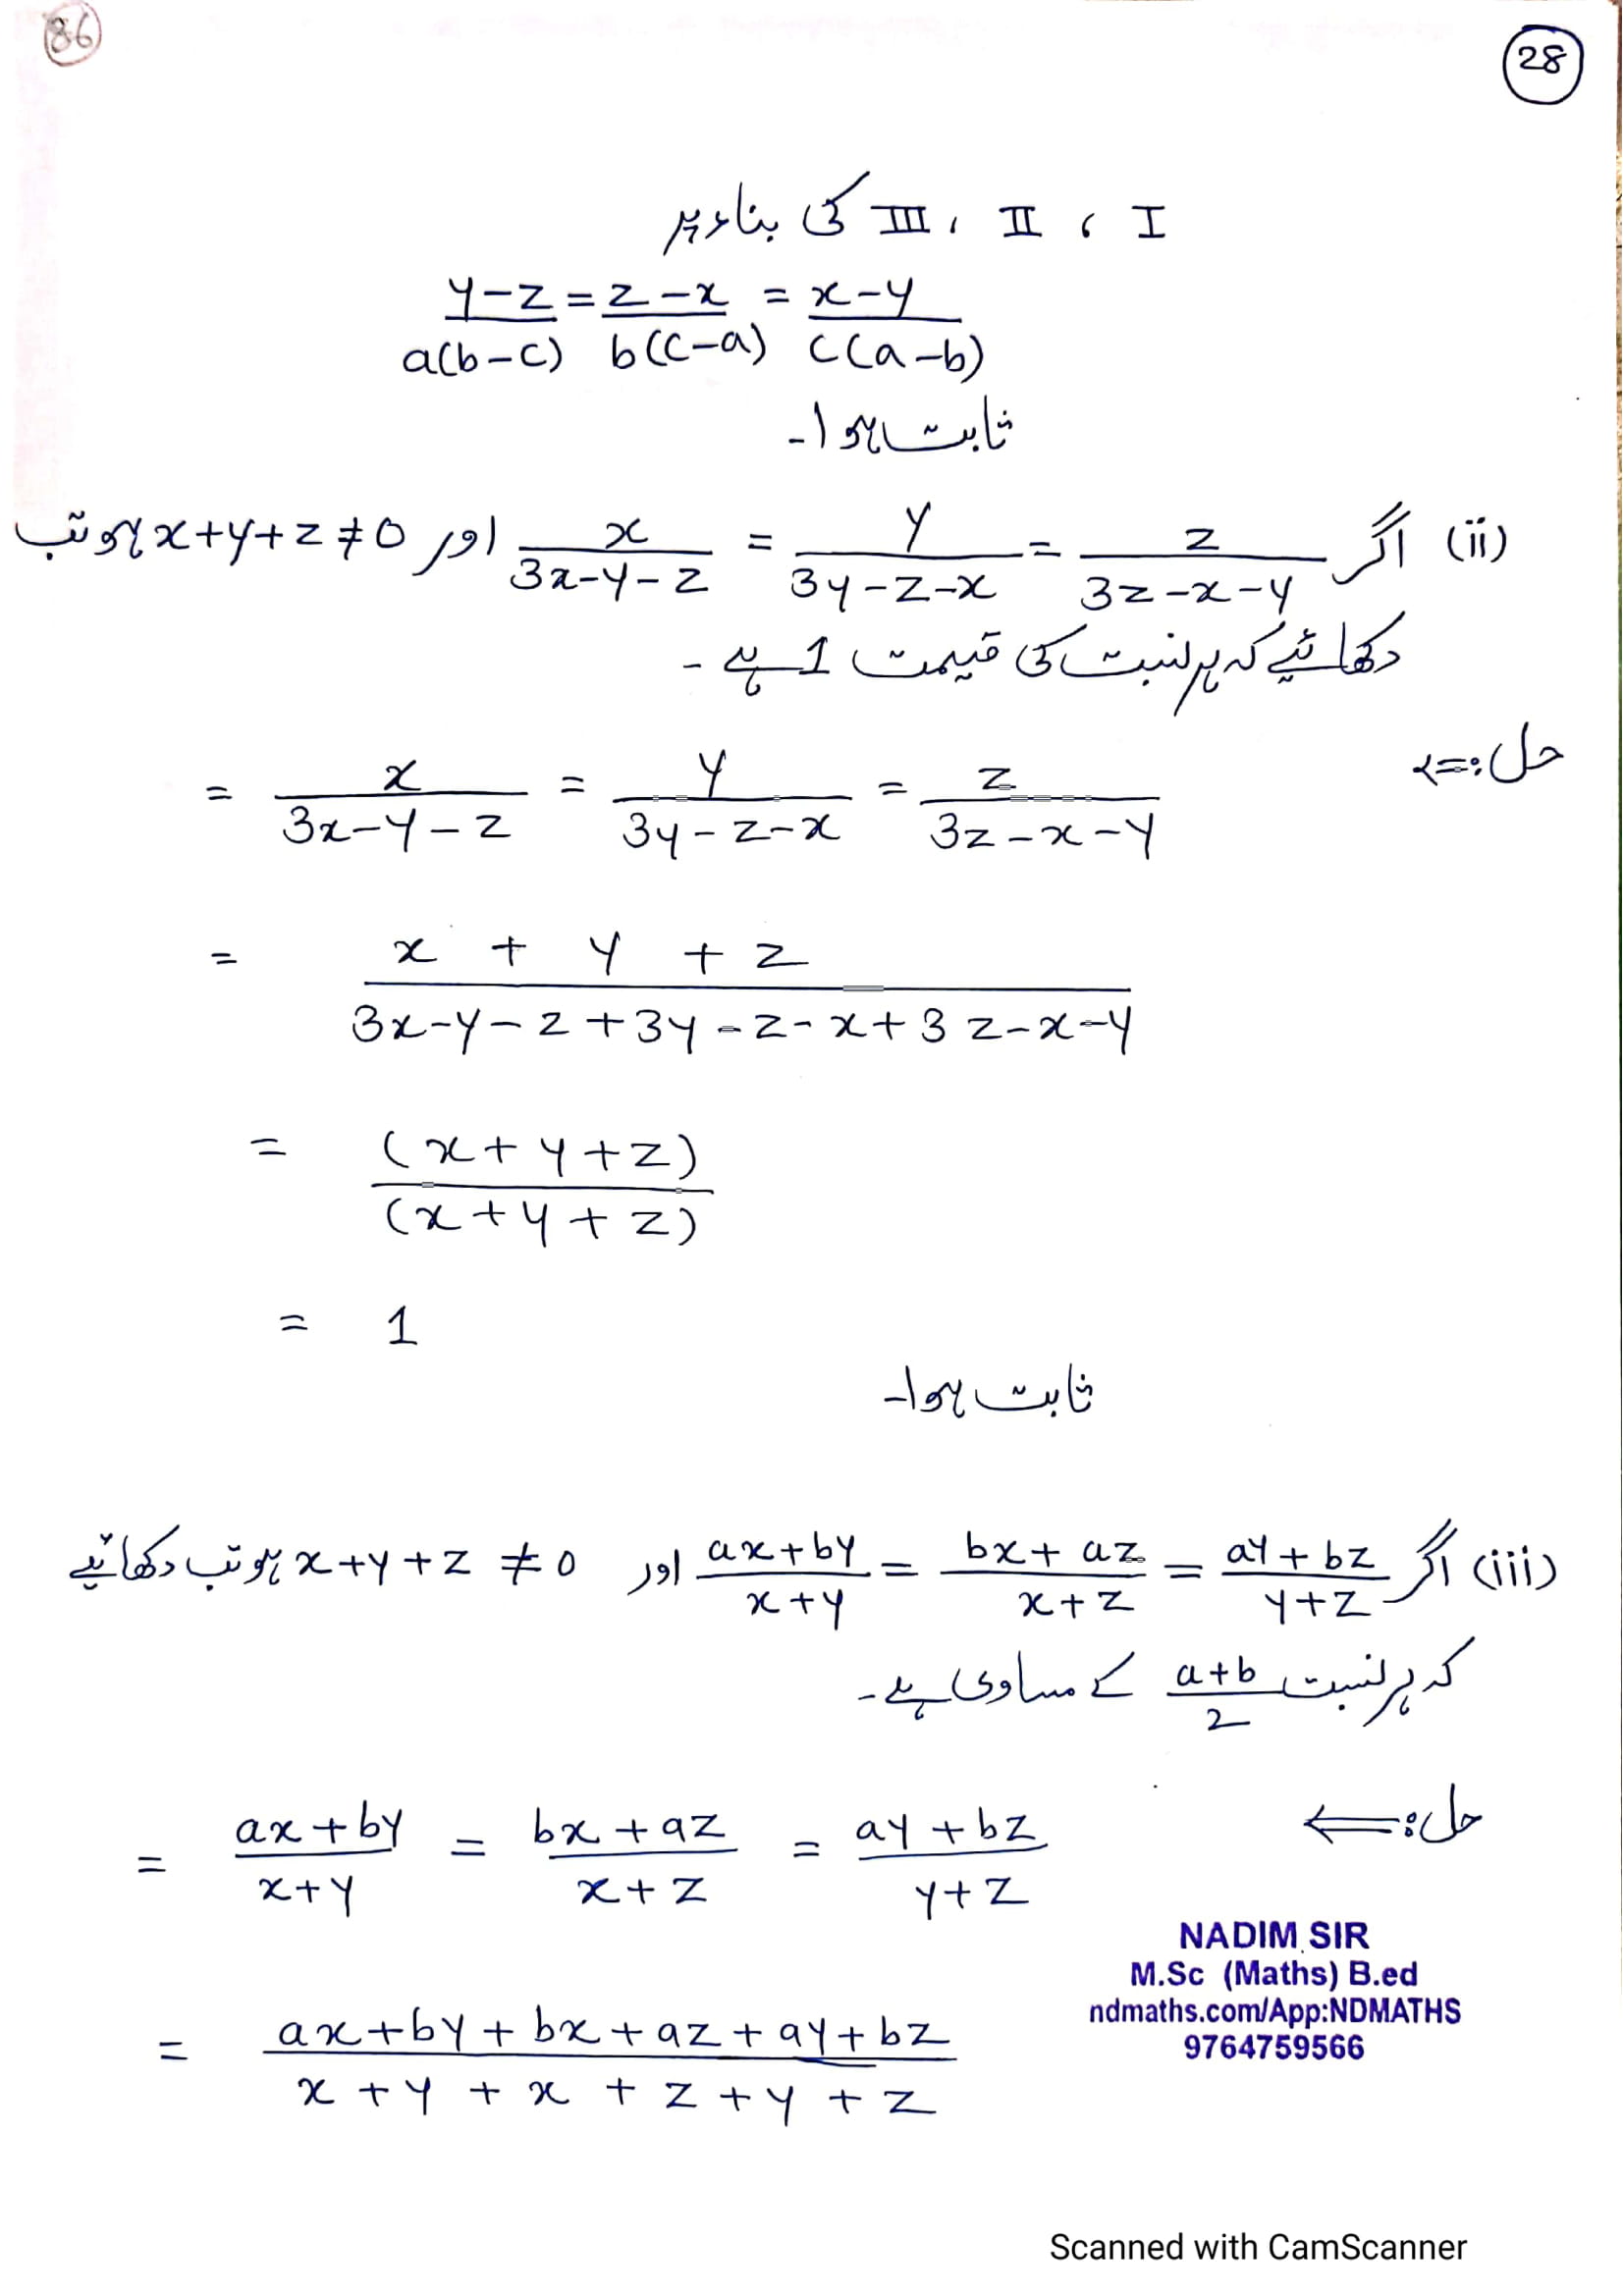 86
28
I ، II ، III کی بناء پر
y-z/a(b-c) = z-x/b(c-a) = x-y/c(a-b)
ثابت ہوا۔
(ii) اگر z/3z-x-y = y/3y-z-x = x/3x-y-z اور x+y+z≠0 ہو تب
دکھائیے کہ ہر نسبت کی قیمت 1 ہے۔
حل:⇒
= x/3x-y-z = y/3y-z-x = z/3z-x-y
= x + y + z/3x-y-z+3y-z-x+3z-x-y
= (x+y+z)/(x+y+z)
= 1
ثابت ہوا۔
(iii) اگر ay+bz/y+z = bx+az/x+z = ax+by/x+y اور x+y+z ≠ 0 ہو تب دکھائیے
کہ ہر نسبت a+b/2 کے مساوی ہے۔
حل:⟸
= ax+by/x+y = bx+az/x+z = ay+bz/y+z
= ax+by+bx+az+ay+bz/x+y+x+z+y+z
NADIM SIR
M.Sc (Maths) B.ed
ndmaths.com/App:NDMATHS
9764759566
Scanned with CamScanner